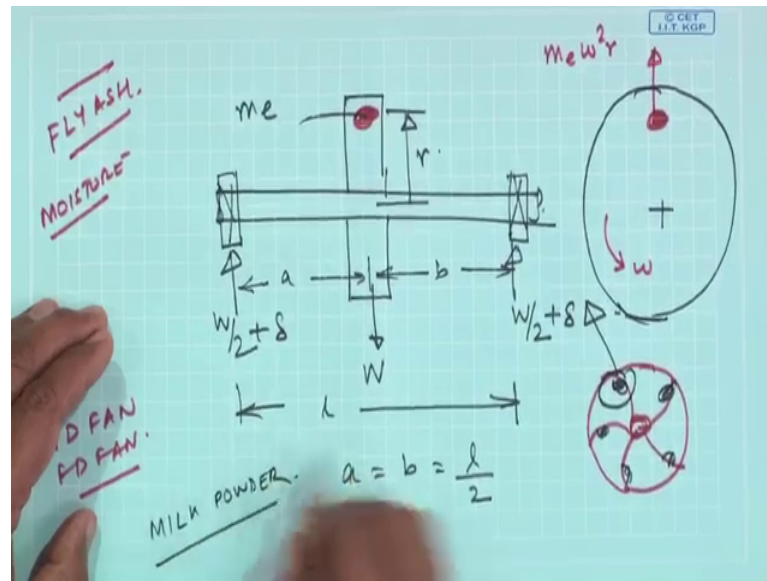 © CET
I.I.T. KGP
FLY ASH.
MOISTURE
me
r.
meω²r
ω
a
b
W/2 + δ
W
W/2 + δ
l
.D FAN
FD FAN.
MILK POWDER.
a = b = l/2